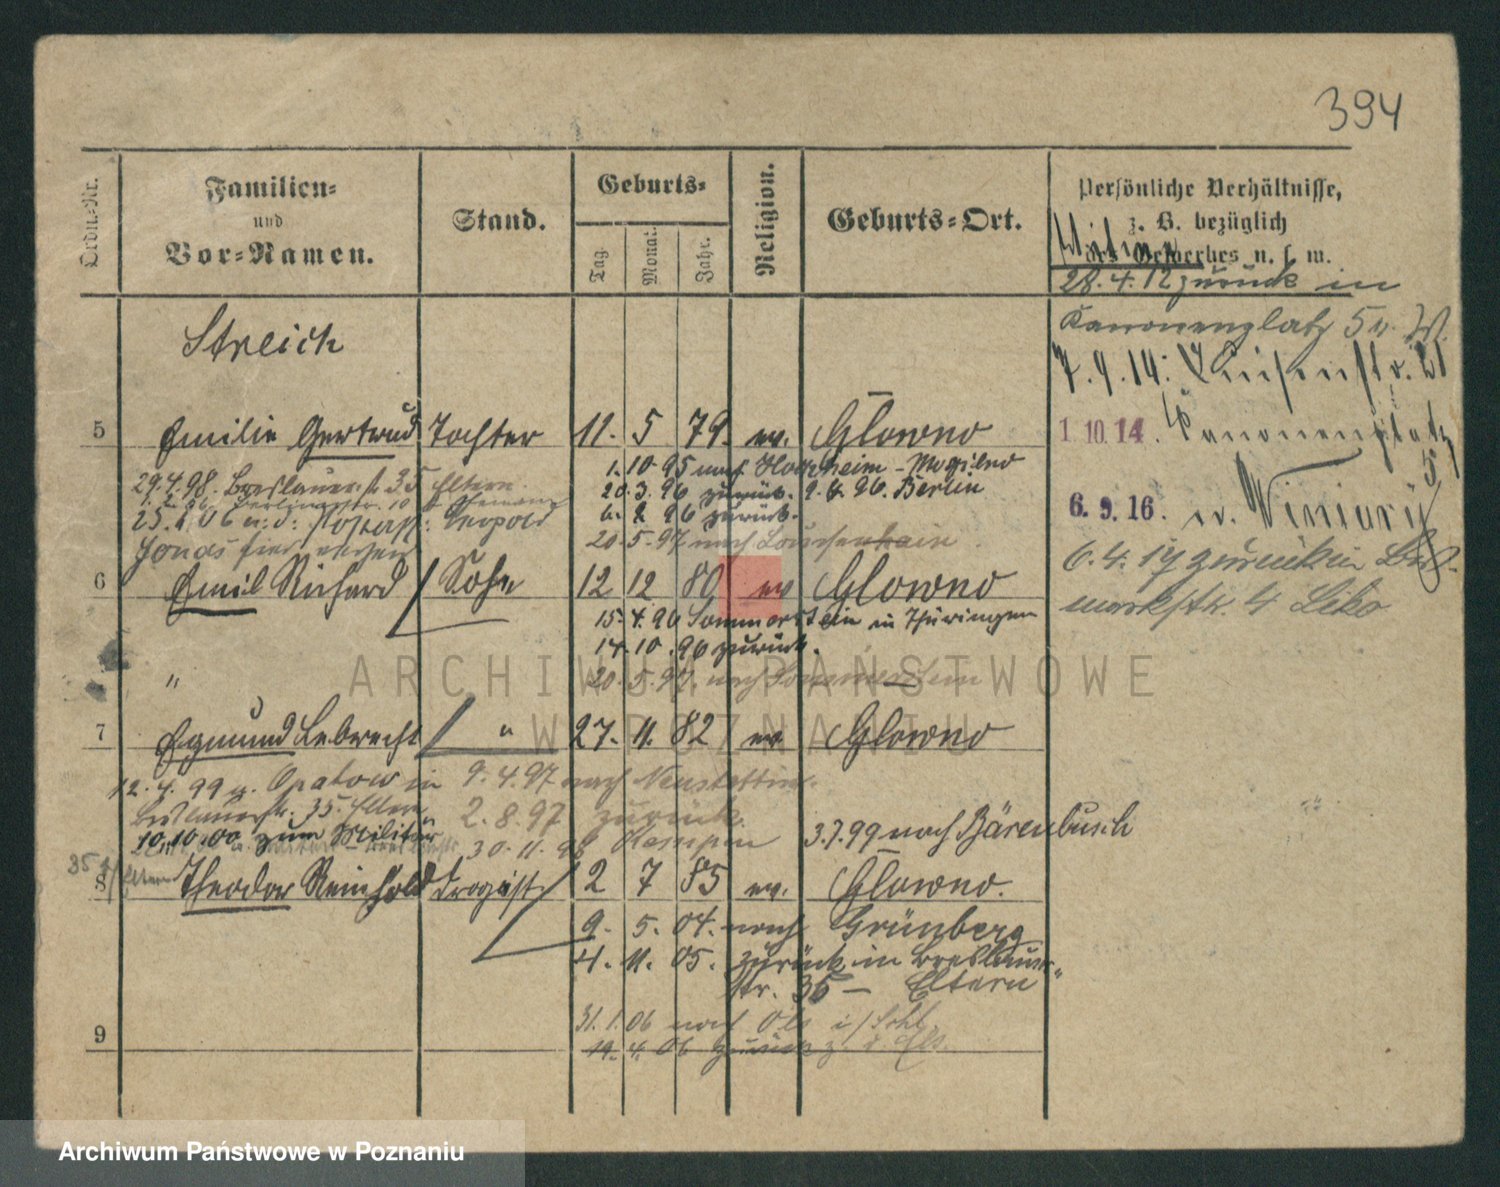 394
Ordn.-Nr.
Familien-
und
Vor-Namen.
Stand.
Geburts-
Tag.
Monat.
Jahr.
Religion.
Geburts-Ort.
Persönliche Verhältnisse,
z. B. bezüglich
des Gewerbes u. s. w.
28.4.12 zurück in
Kanonenplatz 5 v. W.
7.9.14:
1.10.14. Kanonenplatz
5
6.9.16. v. Winiary
6.4.17 zurück in Bis-
markstr. 4
Streich
5 Emilie Gertrud Tochter 11. 5 79. ev. Glowno
1.10 95 nach Hochheim - Mogilno
29.4.98. Breslauerstr 35 Eltern
20.3.96 zurück. 9.4.96. Berlin
25.1.06 Leopold
6. 96 zurück.
Jonas
20.5.97 nach
6 Emil Richard Sohn 12 12 80 ev Glowno
15.4.96 Sommerstein in Thüringen
14.10.96 zurück.
20.5.97. nach Sommerstein
"
7 Egmund Lebrecht " 27. 11. 82 ev Glowno
12.4.99 v. Opatow in 9.4.97 nach Neustettin.
Breslauerstr. 35. Eltern 2.8.97 zurück.
10.10.00 zum Militär
30.11.98 Kempen 3.7.99 nach Bärenbusch
35 Eltern
8 Theodor Reinhold Drogist 2 7 85 ev. Glowno.
9. 5. 04. nach Grünberg
4. 11. 05. zurück in Breslauer-
str. 35 - Eltern
31.1.06 nach Ols i/Schl.
19.4.06 zurück z. d. Els.
9
ARCHIWUM PAŃSTWOWE
W POZNANIU
Archiwum Państwowe w Poznaniu